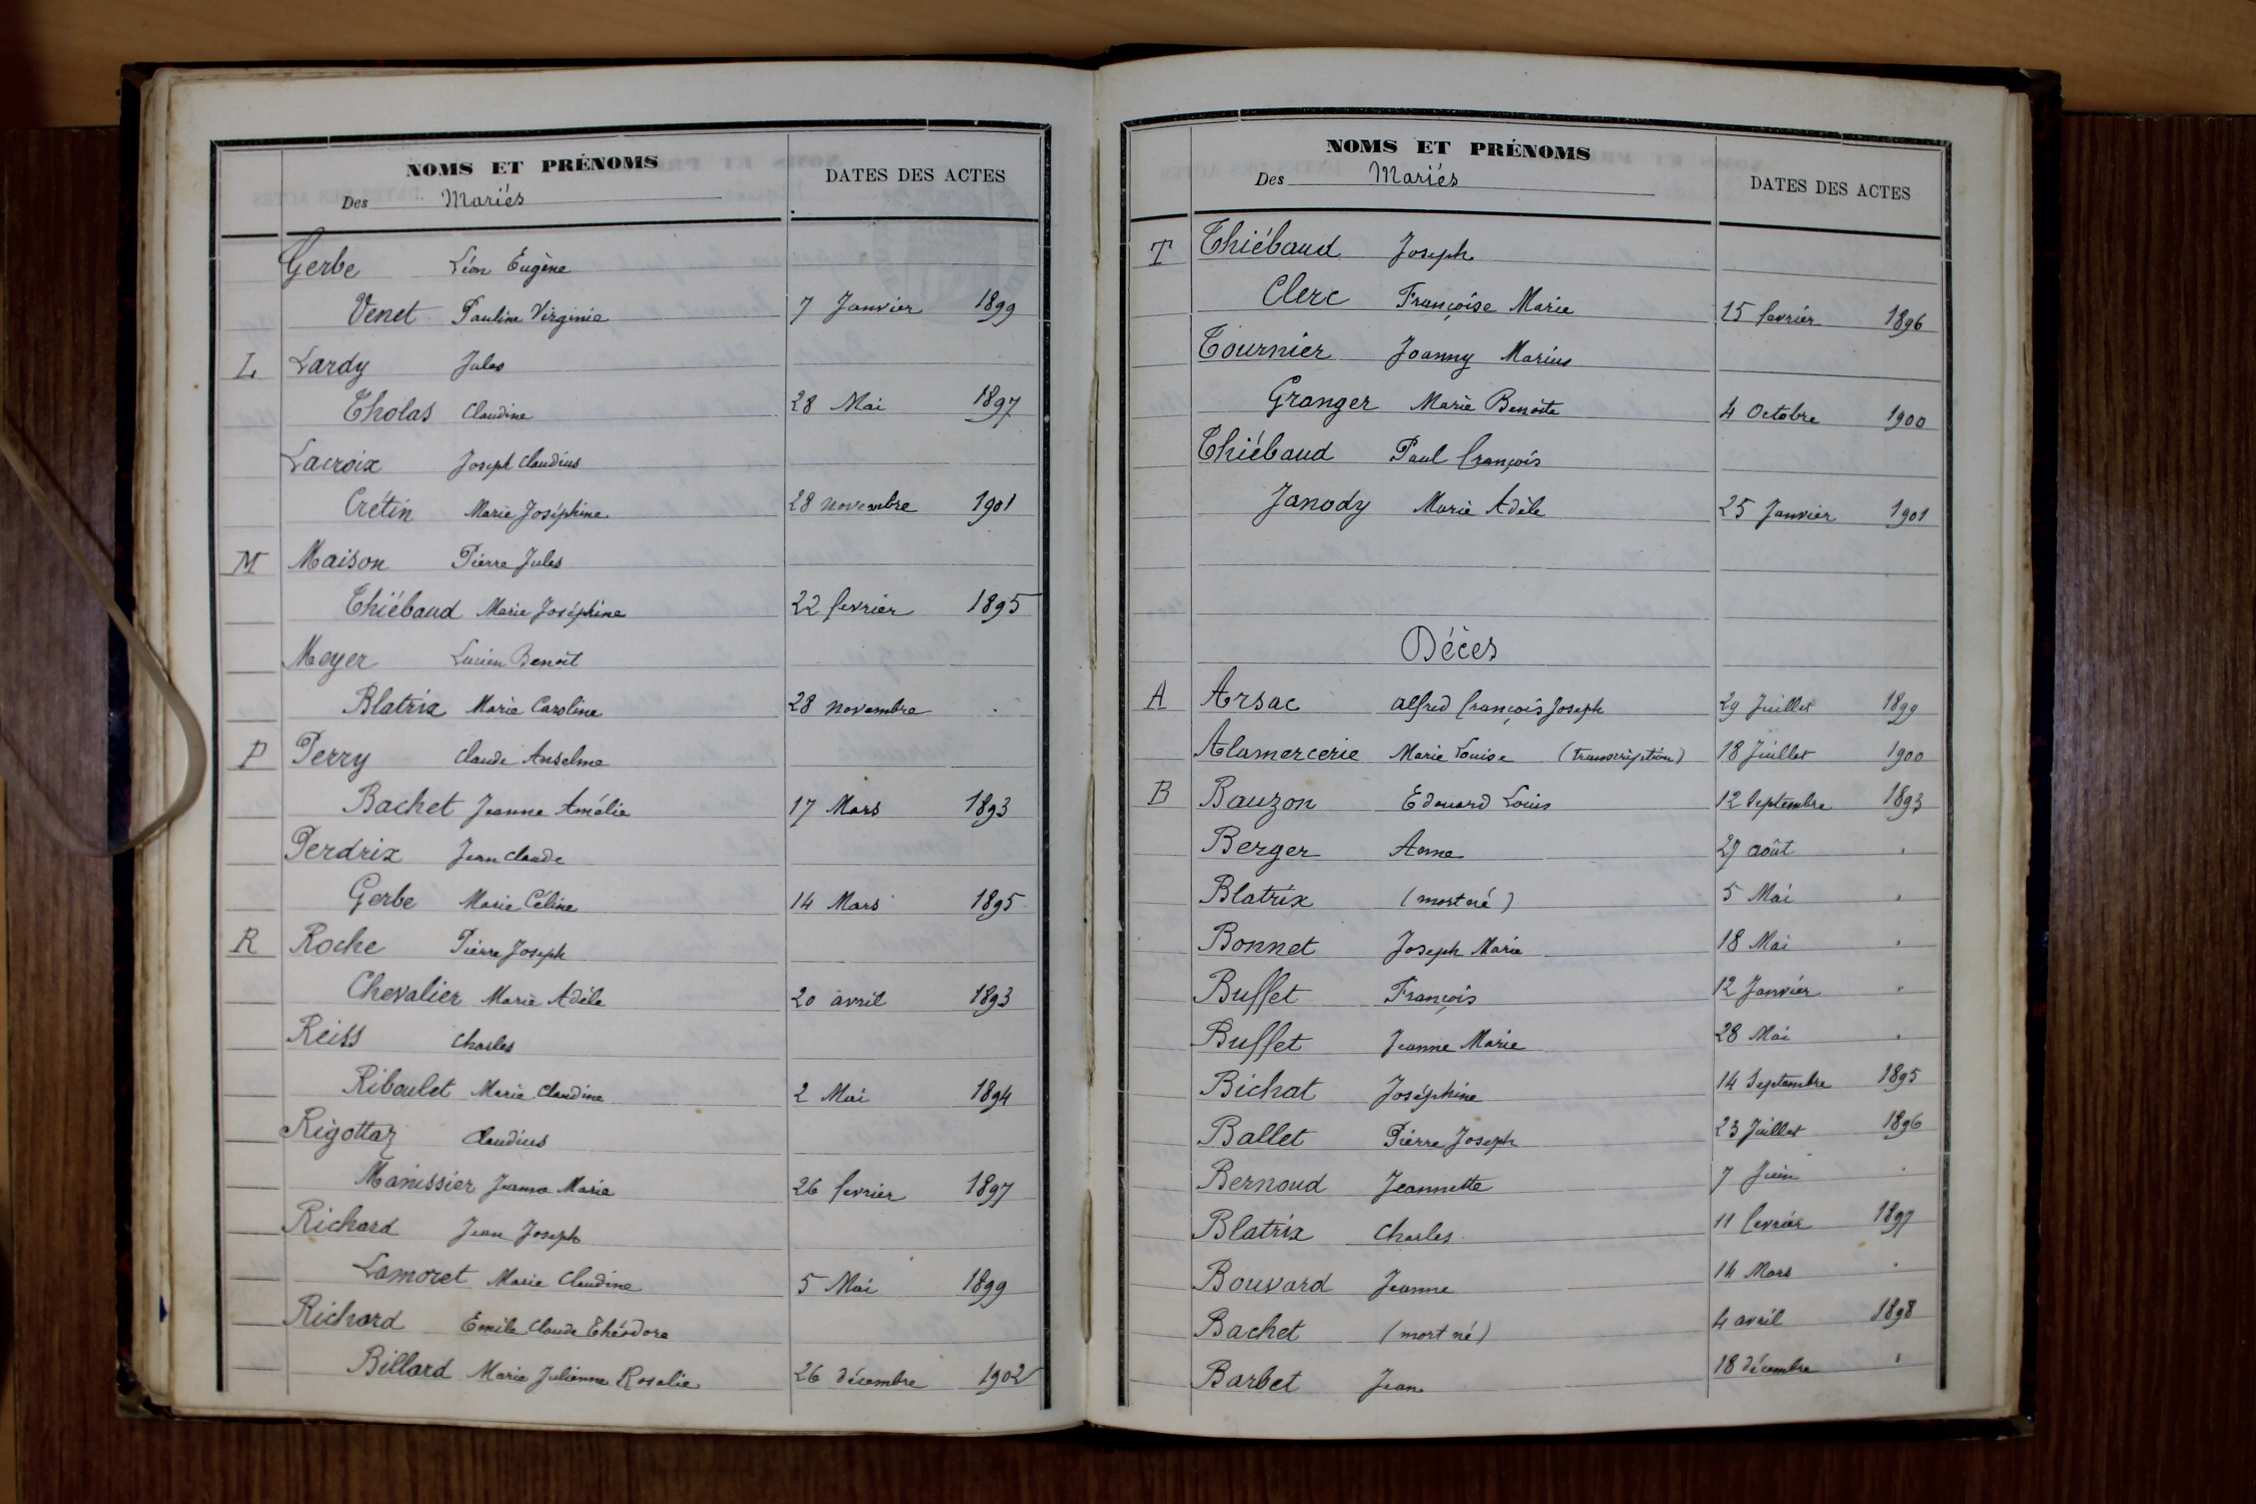 NOMS ET PRÉNOMS
Des Mariés
DATES DES ACTES
Gerbe Léon Eugène
Venet Pauline Virginie 7 Janvier 1899
L Lardy Jules
Tholas Claudine 28 Mai 1897
Lacroix Joseph Claudius
Crétin Marie Joséphine 28 novembre 1901
M Maison Pierre Jules
Thiébaud Marie Joséphine 22 fevrier 1895
Meyer Lucien Benoît
Blatrix Marie Caroline 28 novembre "
P Perry Claude Anselme
Bachet Jeanne Amélie 17 Mars 1893
Perdrix Jean Claude
Gerbe Marie Céline 14 Mars 1895
R Roche Pierre Joseph
Chevalier Marie Adèle 20 avril 1893
Reiss Charles
Riboulet Marie Claudine 2 Mai 1894
Rigottaz Claudius
Manissier Jeanne Marie 26 fevrier 1897
Richard Jean Joseph
Lamoret Marie Claudine 5 Mai 1899
Richard Emile Claude Théodore
Billard Marie Julienne Rosalie 26 décembre 1902
NOMS ET PRÉNOMS
Des Mariés
DATES DES ACTES
T Thiébaud Joseph
Clerc Françoise Marie 15 fevrier 1896
Tournier Joanny Marius
Granger Marie Benoite 4 Octobre 1900
Thiébaud Paul François
Janody Marie Adèle 25 Janvier 1901
Décès
A Arsac Alfred François Joseph 29 Juillet 1899
Alamercerie Marie Louise (transcription) 18 Juillet 1900
B Bauzon Edouard Louis 12 Septembre 1893
Berger Anne 27 août "
Blatrix (mort né) 5 Mai "
Bonnet Joseph Marie 18 Mai "
Buffet François 12 Janvier "
Buffet Jeanne Marie 28 Mai "
Bichat Joséphine 14 Septembre 1895
Ballet Pierre Joseph 23 Juillet 1896
Bernoud Jeannette 7 Juin "
Blatrix Charles 11 fevrier 1897
Bouvard Jeanne 14 Mars "
Bachet (mort né) 4 avril 1898
Barbet Jean 18 décembre "